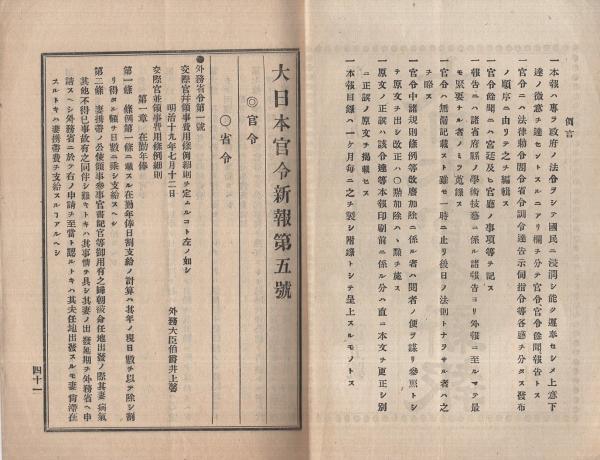 例言
一本報ハ專ラ政府ノ法令ヲシテ國民ニ浸潤シ能ク遵奉セシメ上意下
達ノ微意ヲ達セントスルニアリ欄ヲ分テ官令官令餘聞報告トス
一官令ニハ法律勅令閣令省令訓令達告示伺指令等各廳ヲ分タス發布
ノ順序ニ由リテ之ヲ編輯ス
一官令餘聞ニハ宮廷及ヒ官廳ノ事項等ヲ記ス
一報告ニハ諸省府縣ノ學術技藝ニ係ル諸報告ヨリ外報ニ至ルマテ最
モ緊要ナル者ノミヲ蒐錄ス
一官令ハ無漏記載スト雖モ一時ニ止リ後日ノ法則トナラサル者ハ之
ヲ略ス
一官令中諸規則條例等改廢加除ニ係ル者ハ閲者ノ便ヲ謀リ參照トシ
テ原文ヲ出シ改正ハ〇點加除ハ、點ヲ施ス
一原文ノ正誤ハ該令達等本報印刷前ニ係ル分ハ直ニ本文ヲ更正シ別
ニ正誤ノ原文ヲ掲載セス
一本報目錄ハ一ケ月每ニ之ヲ製シ附錄トシテ呈上スルモノトス
大日本官令新報第五號
◎官令
〇省令
●外務省令第一號
交際官幷領事費用條例細則ヲ定ムルコト左ノ如シ
明治十九年七月十二日
外務大臣伯爵井上馨
交際官並領事費用條例細則
第一章 在勤年俸
第一條 條例第一條ニ載スル在勤年俸日割支給ノ計算ハ其年ノ現日數ヲ以テ除シ割
リ得タル額ヲ日數ニ乘シ支給スヘシ
第二條 妻携帶ノ公使領事參事官書記官等御用有之歸朝或命任地出發ノ際其妻病氣
其他不得已事故有之同伴シ難キトキハ其事情ヲ具シ其妻ノ出發延期ヲ外務省ヘ申
請スヘシ外務省ニ於テ右ノ申請ヲ至當ト認ルトキハ其夫任地出發スルモ妻滯在
スルトキハ妻携帶費ヲ支給スルコアルヘシ
四十一